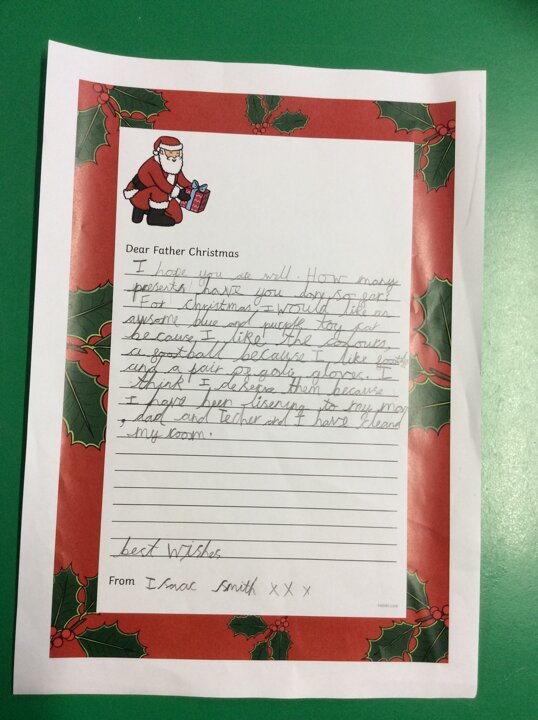 Dear Father Christmas
I hope you are well. How many
presents have you don so far?
For christmas I would like an
awsome blue and purple toy car
because I like the colours,
a football because I like football
and a pair of goly gloves. I
think I deserve them because
I have been lisening to my mom
, dad and techer and I have cleand
my room.
best wishes
From Isaac smith x X x